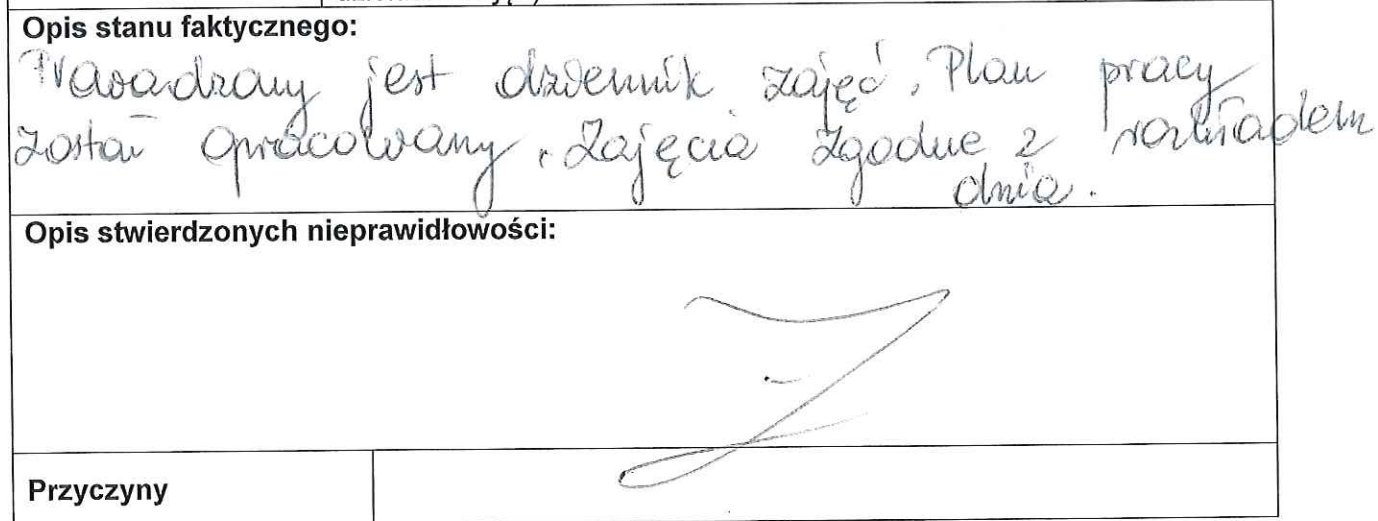 Opis stanu faktycznego:
Prowadzony jest dziennik zajęć. Plan pracy
został opracowany. Zajęcia zgodne z rozkładem
dnia.
Opis stwierdzonych nieprawidłowości:
Przyczyny